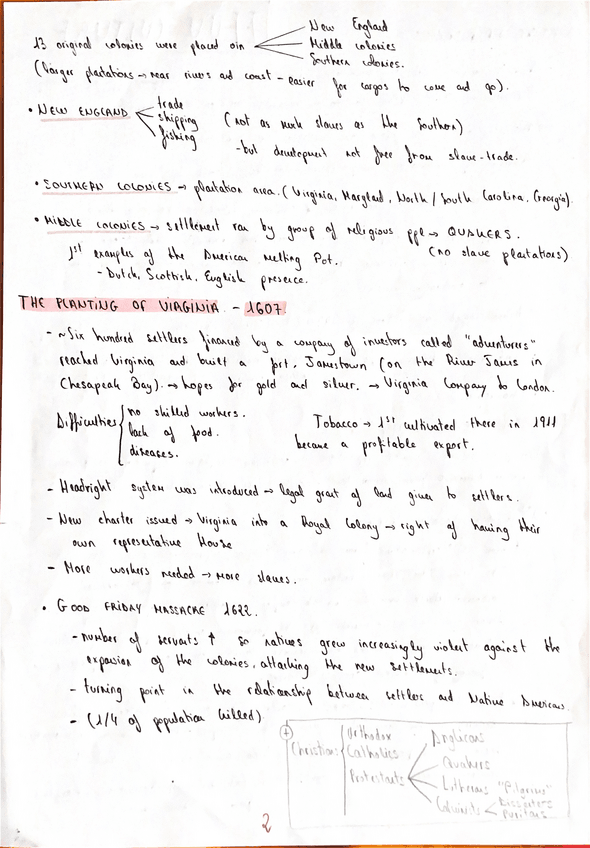 New England
13 original colonies were placed oin Middle colonies
Southern colonies.
(larger plantations → near rivers and coast - easier for cargos to come and go).
• NEW ENGLAND trade
shipping (not as much slaves as the Southern)
fishing -but development not free from slave-trade.
• SOUTHERN COLONIES → plantation area. (Virginia, Maryland, North / South Carolina, Georgia).
• MIDDLE COLONIES → settlement ran by group of religious ppl → QUAKERS.
1st examples of the American Melting Pot. (no slave plantations)
- Dutch, Scottish, English presence.
THE PLANTING OF VIRGINIA - 1607.
- ~Six hundred settlers financed by a company of investors called "adventurers"
reached Virginia and built a fort, Jamestown (on the River James in
Chesapeak Bay). → hopes for gold and silver. → Virginia Company to London.
Difficulties no skilled workers. Tobacco → 1st cultivated there in 1911
lack of food. became a profitable export.
diseases.
- Headright system was introduced → legal grant of land given to settlers.
- New charter issued → Virginia into a Royal Colony → right of having their
own representative House
- More workers needed → more slaves.
• GOOD FRIDAY MASSACRE 1622.
- number of servants ↑ so natives grew increasingly violent against the
expansion of the colonies, attacking the new settlements.
- turning point in the relationship between settlers and Native Americans.
- (1/4 of population killed)
+ Christians Orthodox Anglicans
Catholics Quakers
Protestants Litherans "Pilgrims"
Calvinists Dissenters
Puritans
2